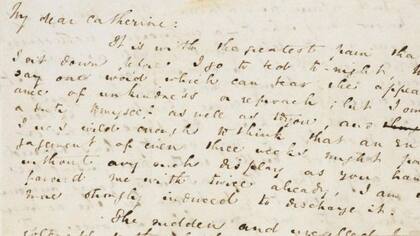 My dear Catherine:
It is with the greatest pain that
I sit down, before I go to bed to-night, to
say one word which can bear the appear-
ance of unkindness or reproach; but I owe
a duty to myself as well as to you, and
I was wild enough to think that an en-
gagement of even three weeks might pass
without any such display as you have
favored me with twice already, I am
more strongly induced to discharge it.
The sudden and uncalled for